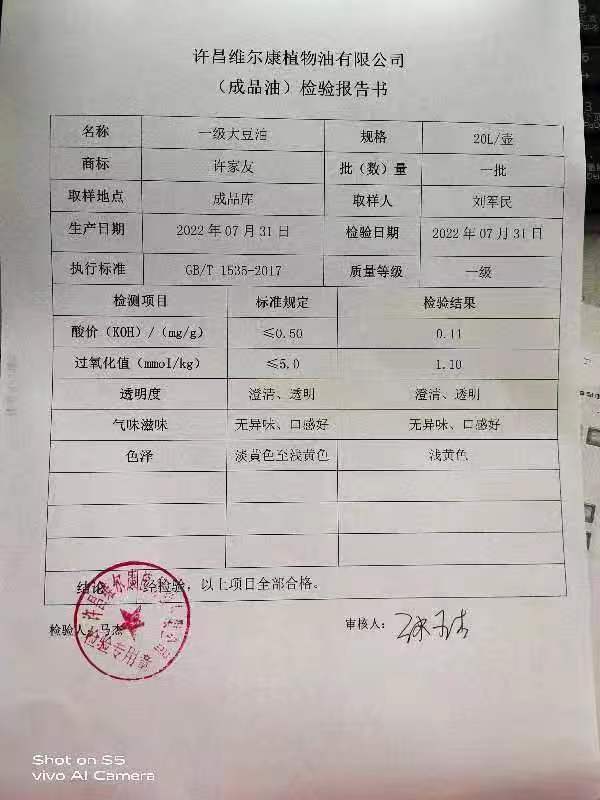 许昌维尔康植物油有限公司
（成品油）检验报告书
名称 一级大豆油 规格 20L/壶
商标 许家友 批（数）量 一批
取样地点 成品库 取样人 刘军民
生产日期 2022 年 07 月 31 日 检验日期 2022 年 07 月 31 日
执行标准 GB/T 1535-2017 质量等级 一级
检测项目 标准规定 检验结果
酸价（KOH）/（mg/g） ≤0.50 0.11
过氧化值（mmol/kg） ≤5.0 1.10
透明度 澄清、透明 澄清、透明
气味滋味 无异味、口感好 无异味、口感好
色泽 淡黄色至浅黄色 浅黄色
结论 经检验，以上项目全部合格。
检验人 马杰 审核人：
许昌维尔康植物油有限公司
检验专用章
Shot on S5
vivo AI Camera